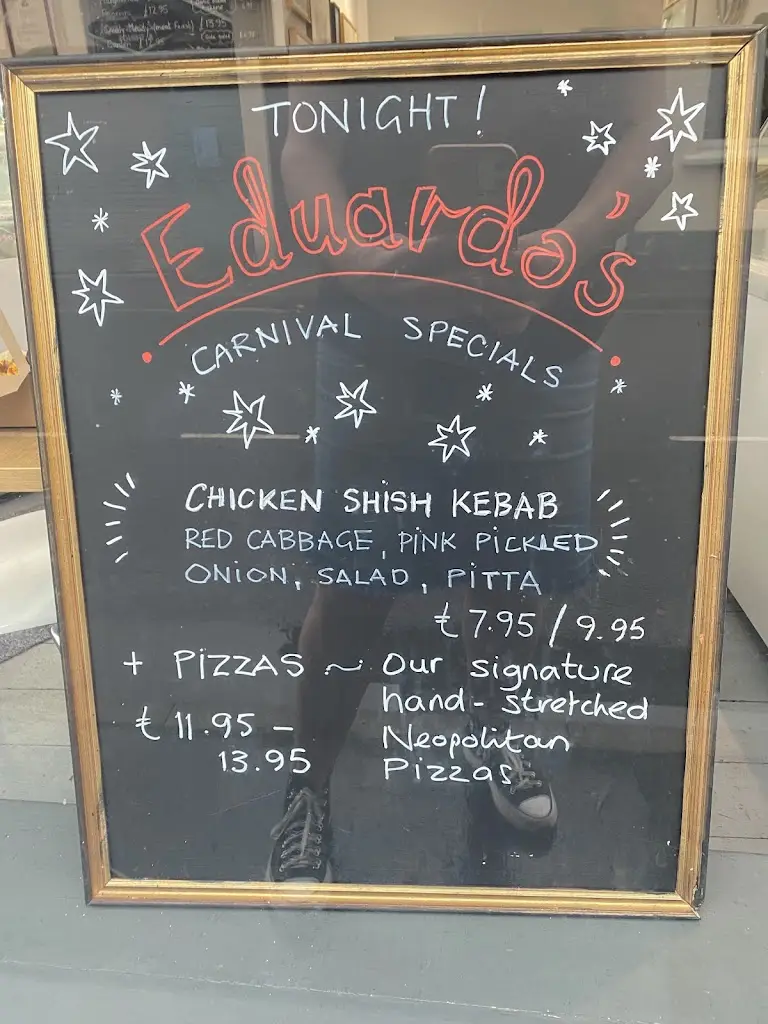 £12.95
£13.95
TONIGHT!
Eduardo's
CARNIVAL SPECIALS
CHICKEN SHISH KEBAB
RED CABBAGE, PINK PICKLED
ONION, SALAD, PITTA
£7.95/9.95
+ PIZZAS ~ Our signature
hand-stretched
£11.95 - Neopolitan
13.95 Pizzas